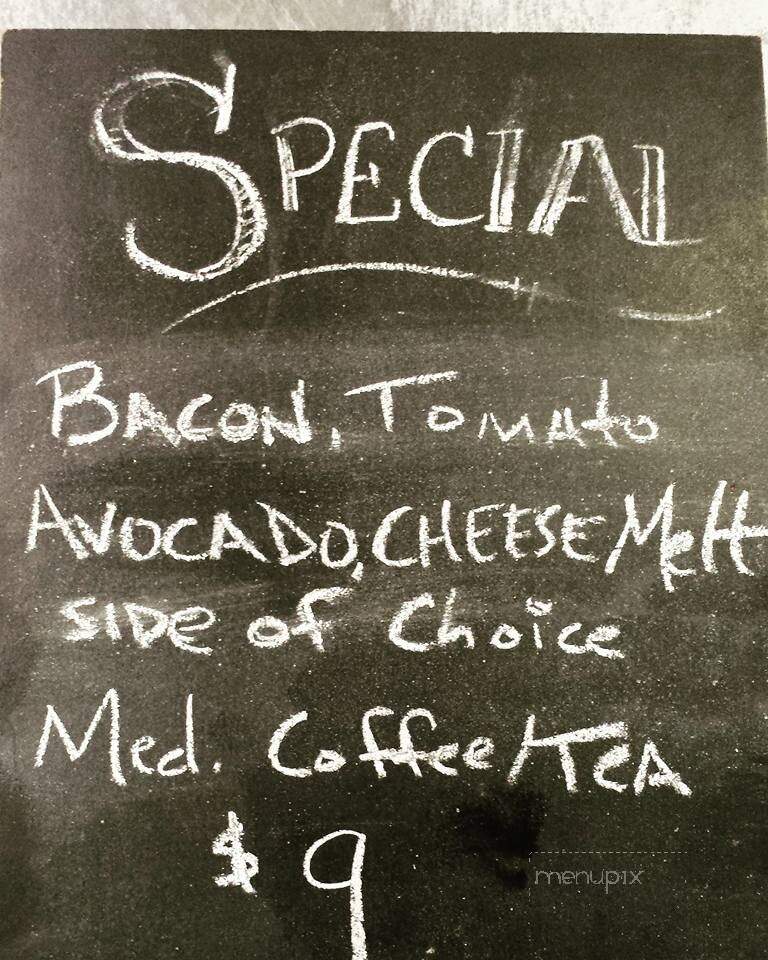 SPECIAL
BACON, TOMATO
AVOCADO, CHEESE Melt
SIDE of Choice
Med. Coffee/TEA
$ 9
menupix